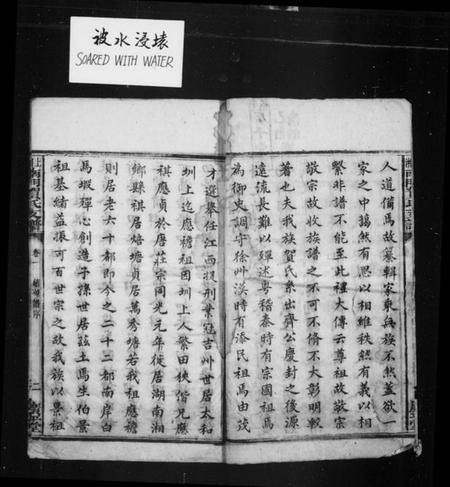 被水浸壞
SOARED WITH WATER
人道備焉故纂輯家乘無族不然蓋欲一
家之中藹然有恩以相維秩然有義以相
繫非譜不能至此禮大傳云尊祖故敬宗
敬宗故收族譜之不可不脩不大彰明較
著也夫我族賀氏系出齊公慶封之後源
遠流長難以殫述粵稽秦時有宗國祖焉
為御史調守徐州漢時有添民祖焉由茂
才選舉任江西叔刑章冠吉州世居太和
圳上迄應禧祖因圳上人繁田狹偕兄應
祺應貞於唐莊宗同光元年徙居湖南湘
鄉縣祺居焙塘貞居萬秀塘若我祖應禧
則居老六十都即今之二十二都南岸白
馬塅殫心創造子孫世居茲土焉生伯景
祖基緒益振可百世宗之故我族以景祖
卷一
二